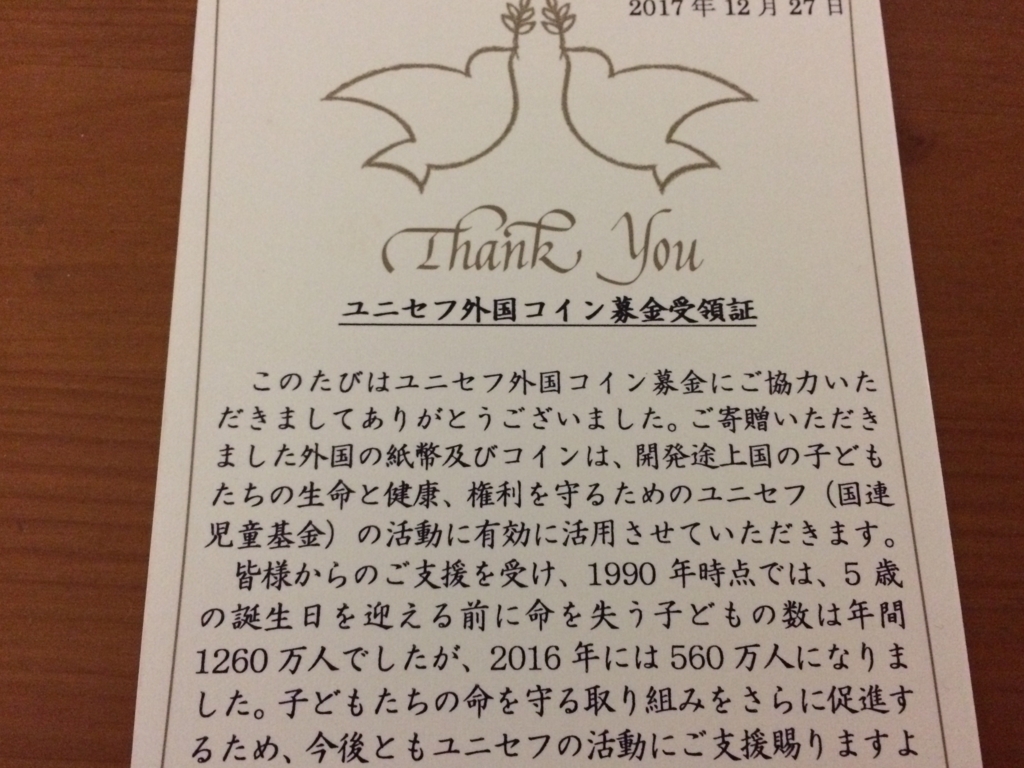 2017年12月27日
Thank You
ユニセフ外国コイン募金受領証
このたびはユニセフ外国コイン募金にご協力いた
だきましてありがとうございました。ご寄贈いただき
ました外国の紙幣及びコインは、開発途上国の子ども
たちの生命と健康、権利を守るためのユニセフ（国連
児童基金）の活動に有効に活用させていただきます。
皆様からのご支援を受け、1990年時点では、5歳
の誕生日を迎える前に命を失う子どもの数は年間
1260万人でしたが、2016年には560万人になりま
した。子どもたちの命を守る取り組みをさらに促進す
るため、今後ともユニセフの活動にご支援賜りますよ